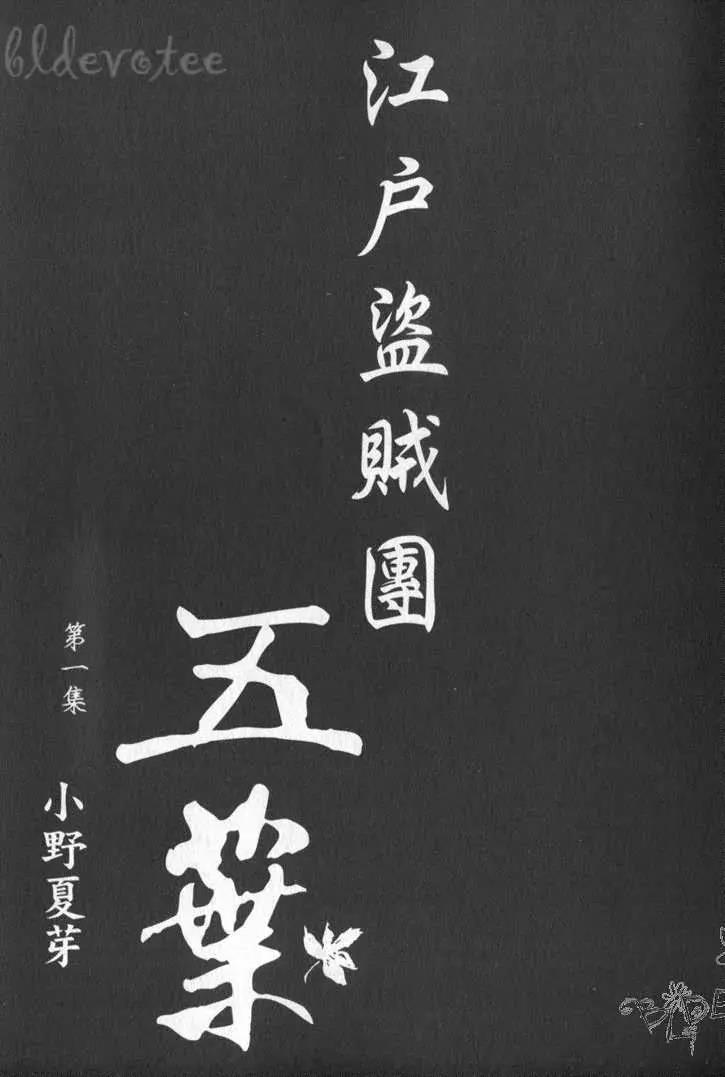 bldevotee
江户盜賊團
五葉
第一集
小野夏芽